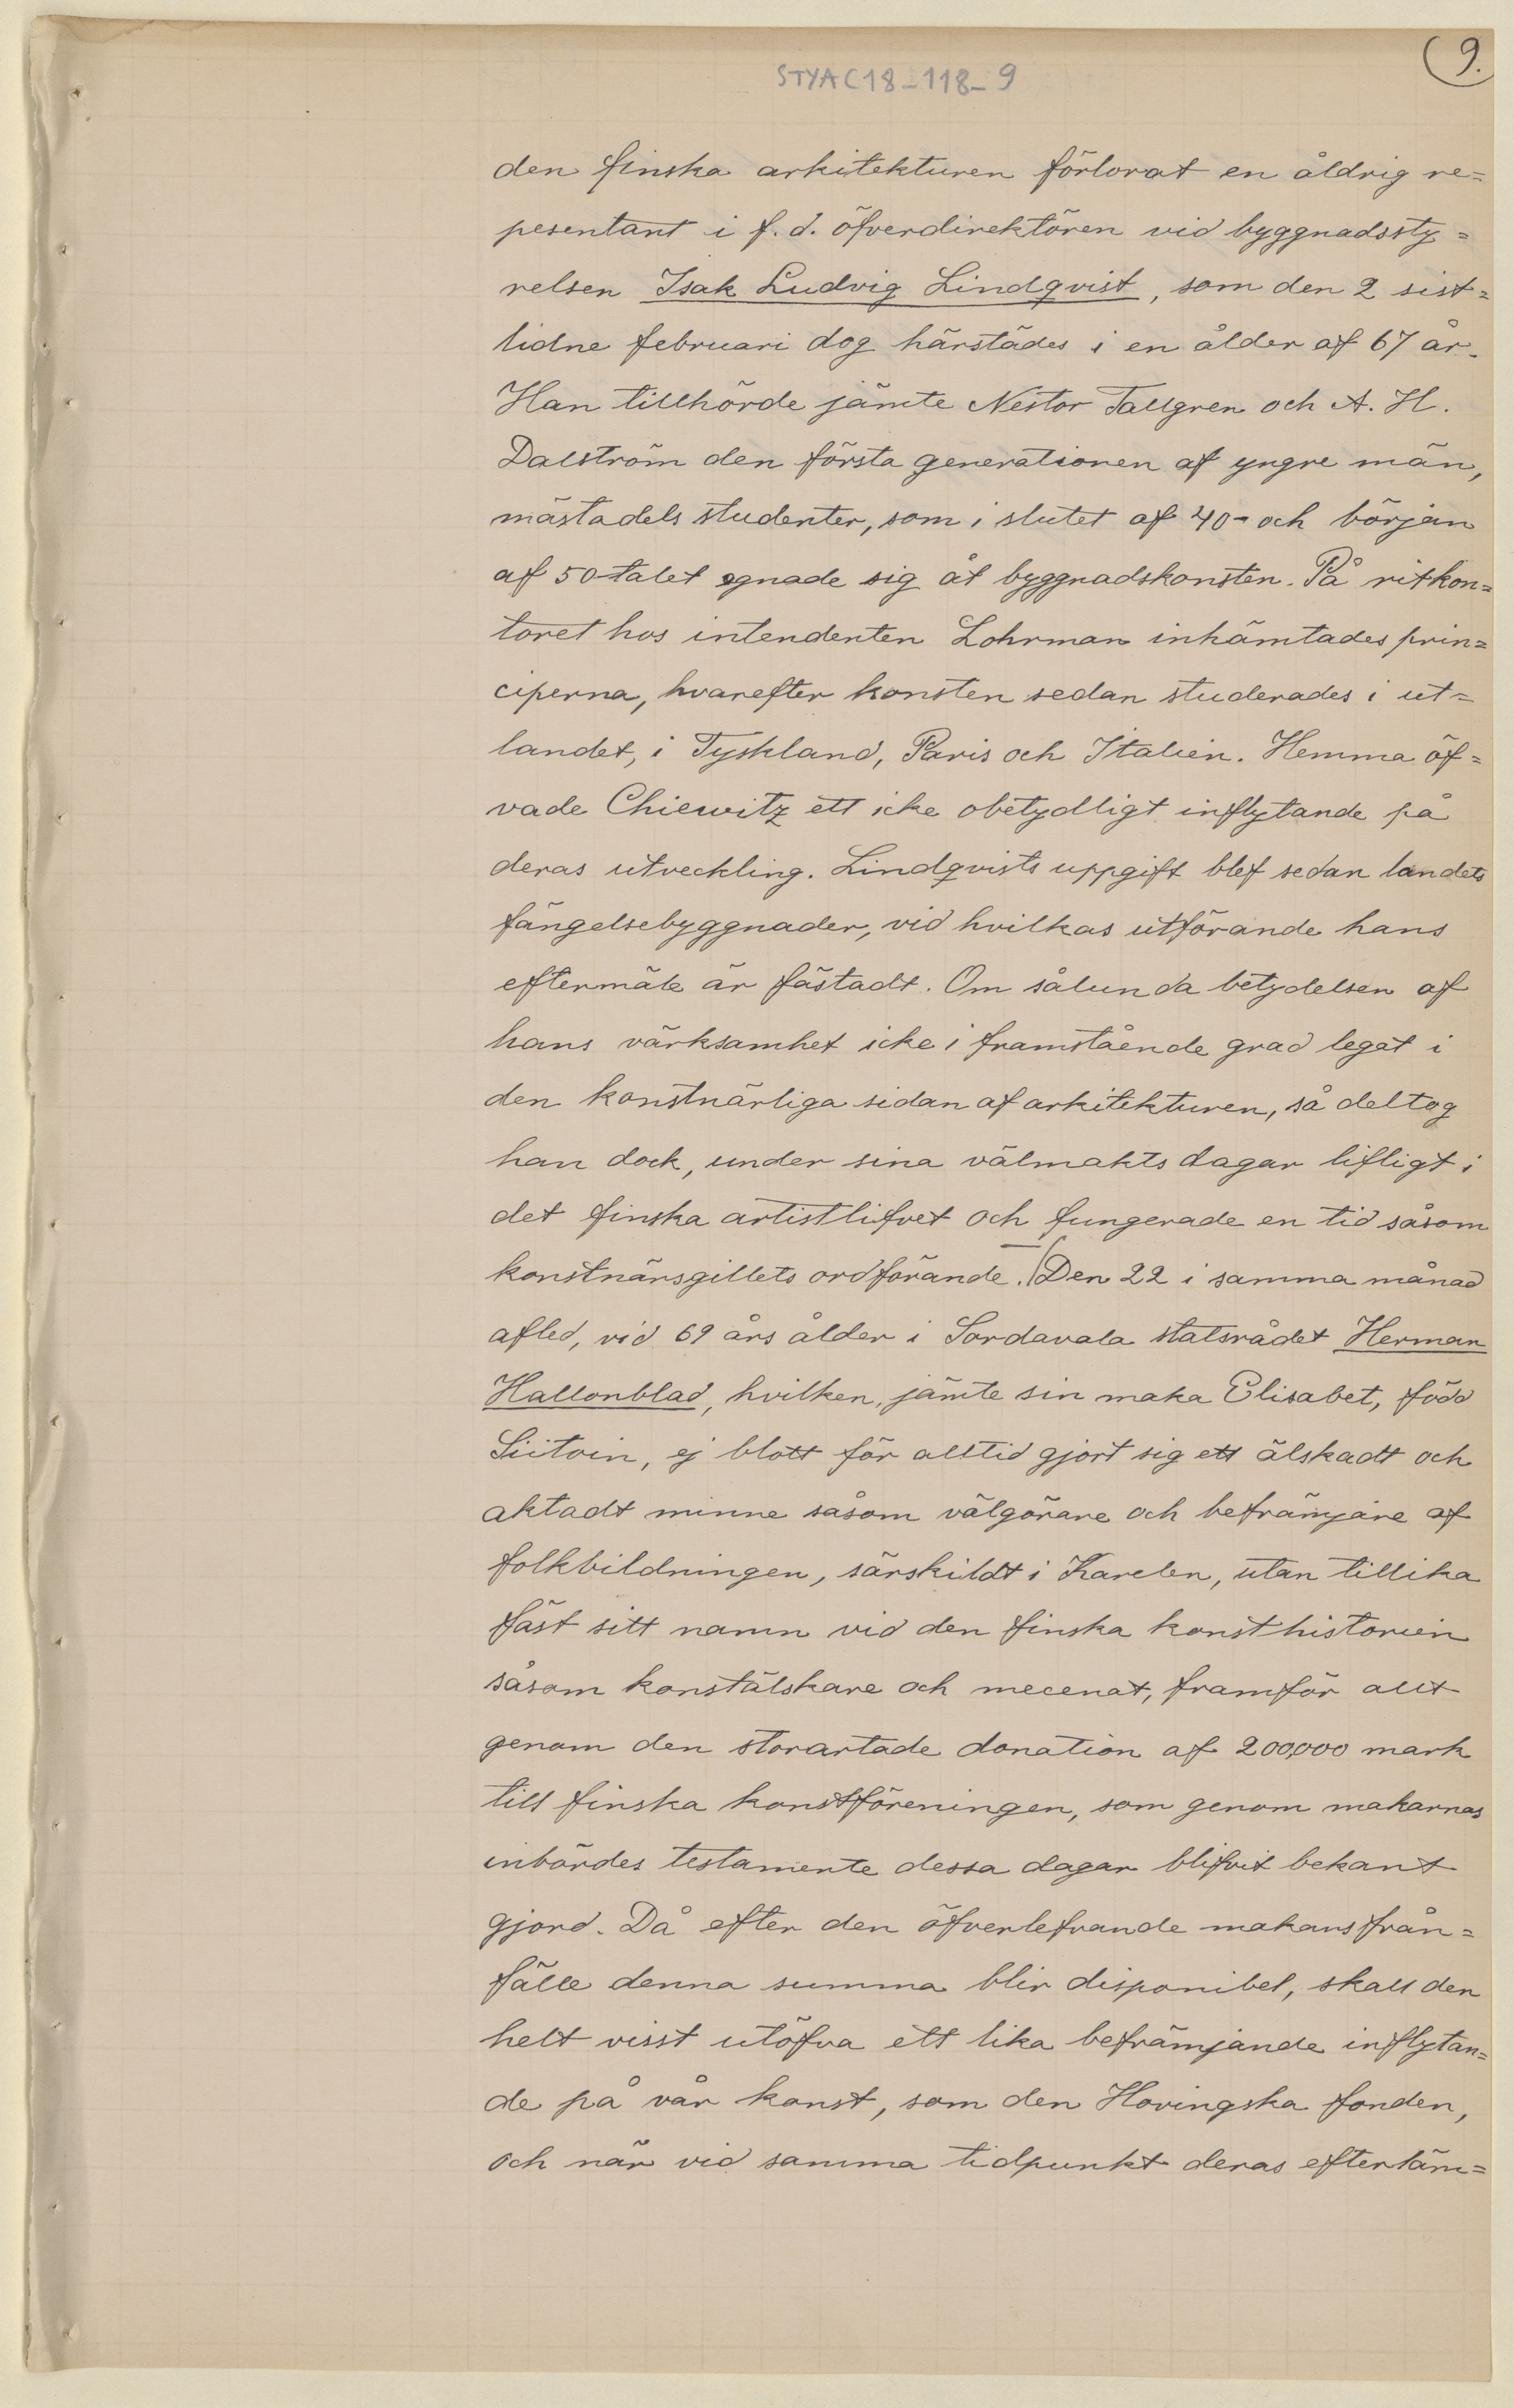 9.
STYA C18-118-9
den finska arkitekturen förlorat en åldrig re=
pesentant i f.d. öfverdirektören vid byggnadssty=
relsen Isak Ludvig Lindqvist, som den 2 sist=
lidne februari dog härstädes i en ålder af 67 år.
Han tillhörde jämte Nestor Tallgren och A. H.
Dalström den första generationen af yngre män,
mästadels studenter, som i slutet af 40- och början
af 50-talet egnade sig åt byggnadskonsten. På ritkon=
toret hos intendenten Lohrman inhämtades prin=
ciperna, hvarefter konsten sedan studerades i ut=
landet, i Tyskland, Paris och Italien. Hemma öf=
vade Chiewitz ett icke obetydligt inflytande på
deras utveckling. Lindqvists uppgift blef sedan landets
fängelsebyggnader, vid hvilkas utförande hans
eftermäle är fästadt. Om sålunda betydelsen af
hans värksamhet icke i framstående grad legat i
den konstnärliga sidan af arkitekturen, så deltog
han dock, under sina välmakts dagar lifligt i
det finska artistlifvet och fungerade en tid såsom
konstnärsgillets ordförande. Den 22 i samma månad
afled, vid 69 års ålder i Sordavala statsrådet Herman
Hallonblad, hvilken, jämte sin maka Elisabet, född
Siitoin, ej blott för alltid gjort sig ett älskadt och
aktadt minne såsom välgörare och befrämjare af
folkbildningen, särskildt i Karelen, utan tillika
fäst sitt namn vid den finska konsthistorien
såsom konstälskare och mecenat, framför allt
genom den storartade donation af 200,000 mark
till finska konstföreningen, som genom makarnas
inbördes testamente dessa dagar blifvit bekant
gjord. Då efter den öfverlefvande makans från=
fälle denna summa blir disponibel, skall den
helt visst utöfva ett lika befrämjande inflytan=
de på vår konst, som den Hovingska fonden,
och när vid samma tidpunkt deras efterläm=